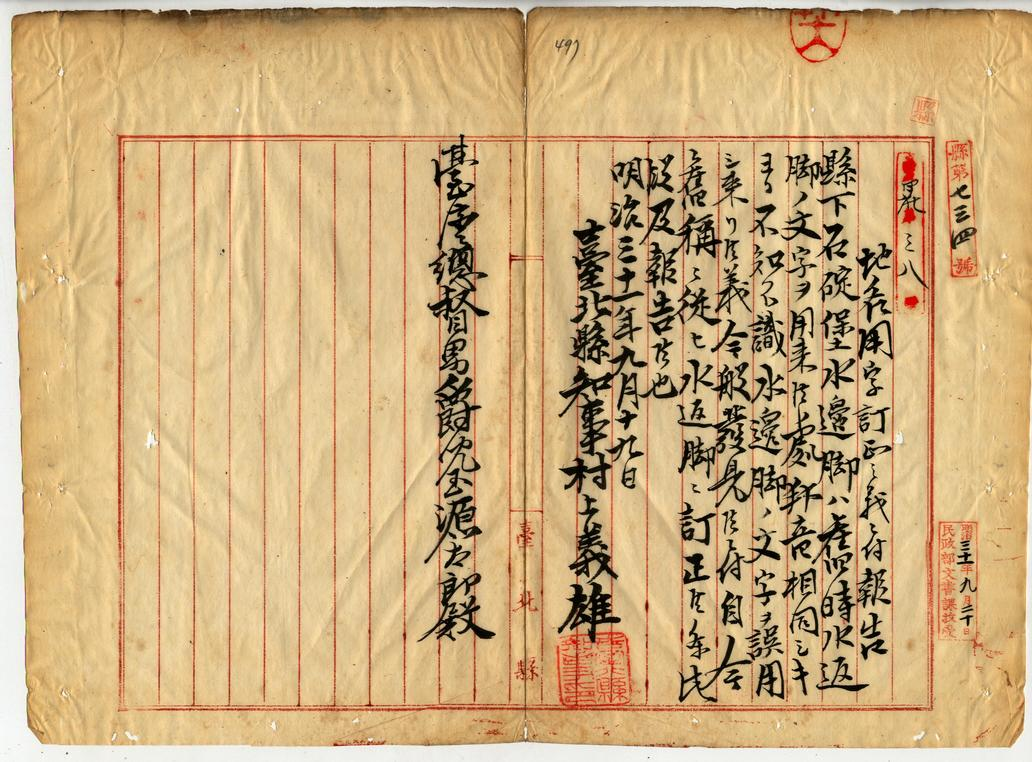 497
縣第七三四號
三八
明治三十一年九月二十日
民政部文書課接受
地名用字訂正ニ義ニ付報告
縣下石碇堡水邊脚ハ舊時水返
脚ノ文字ヲ用来候處軒音相同シキ
ヨリ不知不識水邊脚ノ文字ヲ誤用
シ来リ候義今般發見候ニ付自今
舊稱ニ從ヒ水返脚ニ訂正候条此
段及報告候也
明治三十一年九月十九日
臺北縣知事村上義雄
臺灣總督男爵児玉源太郎殿
臺北縣